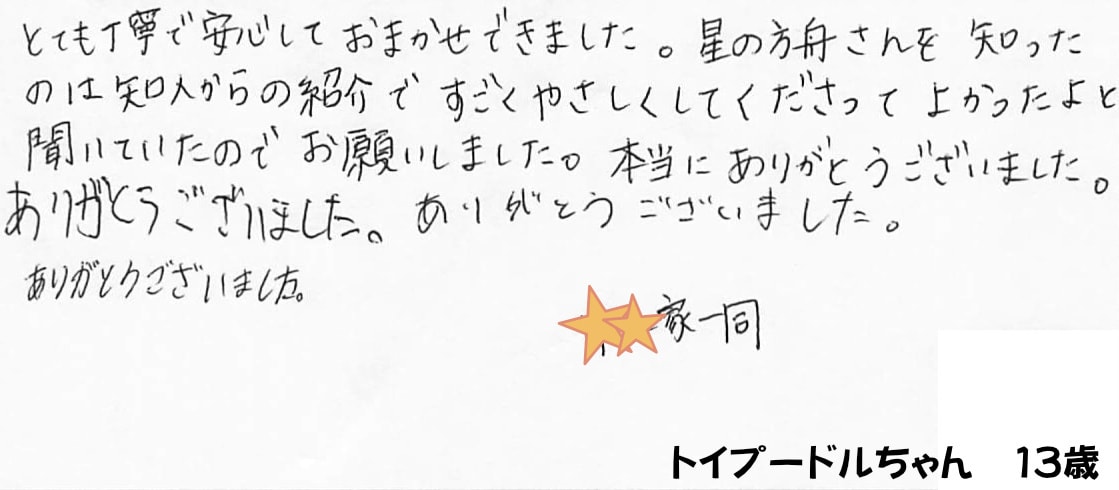 とても丁寧で安心しておまかせできました。星の方舟さんを知った
のは知人からの紹介ですごくやさしくしてくださってよかったよと
聞いていたのでお願いしました。本当にありがとうございました。
ありがとうございました。ありがとうございました。
ありがとうございました。
家一同
トイプードルちゃん 13歳